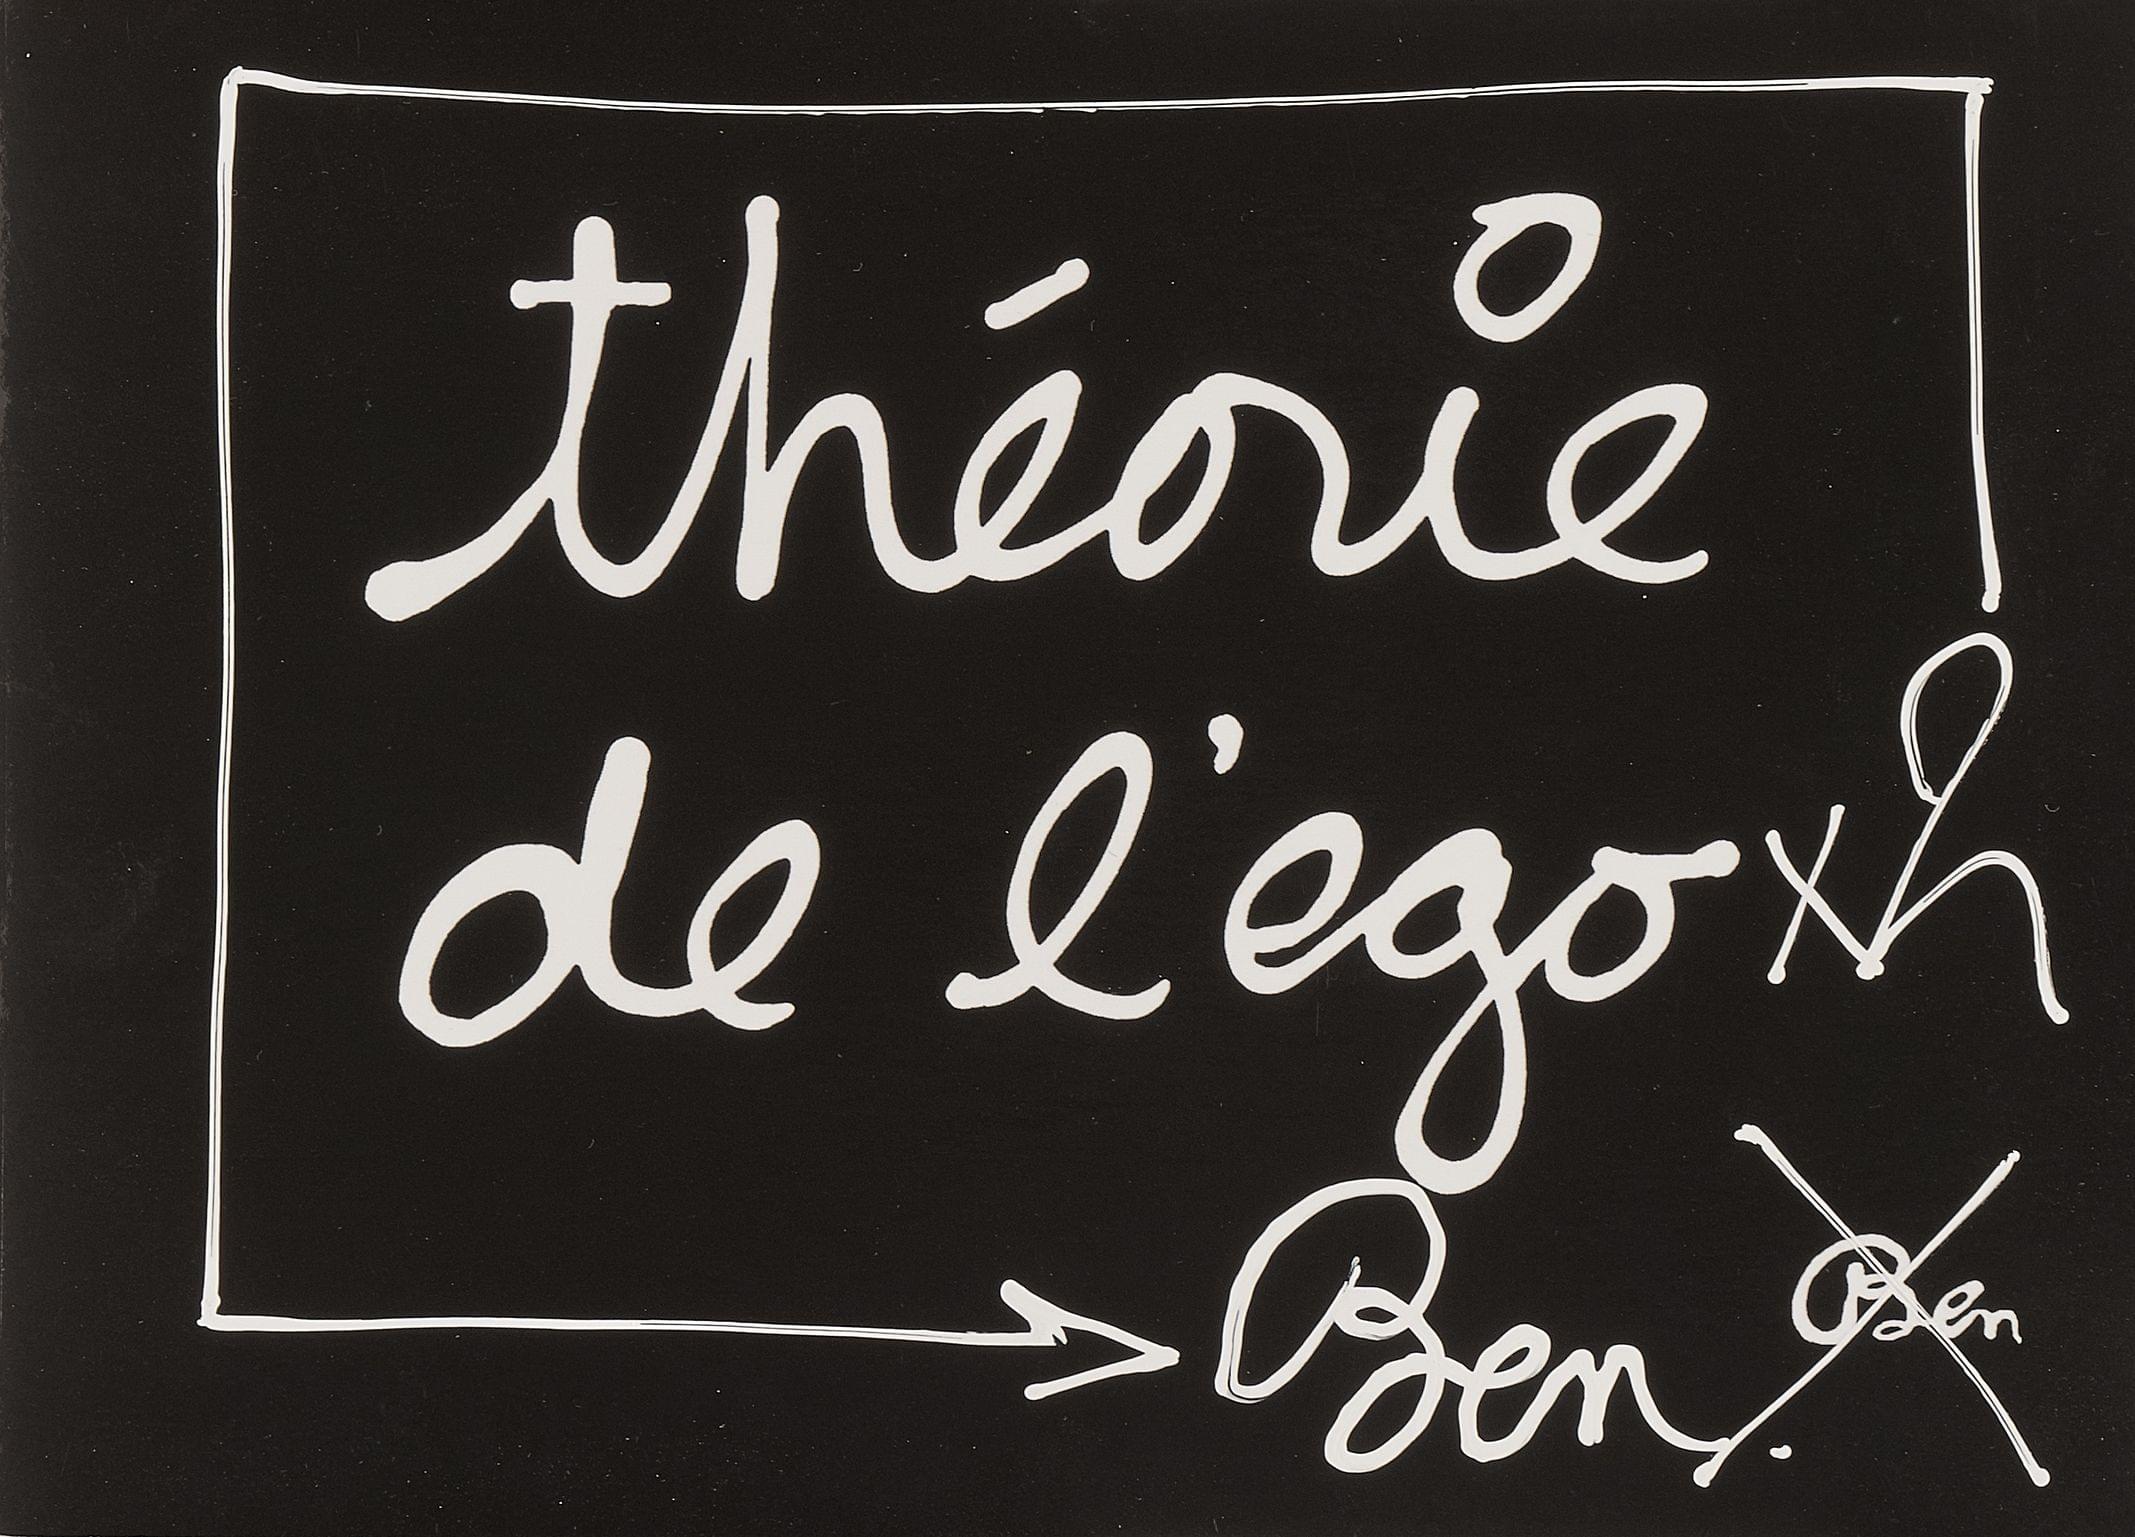 théorie
de l'ego
Ben.
Ben